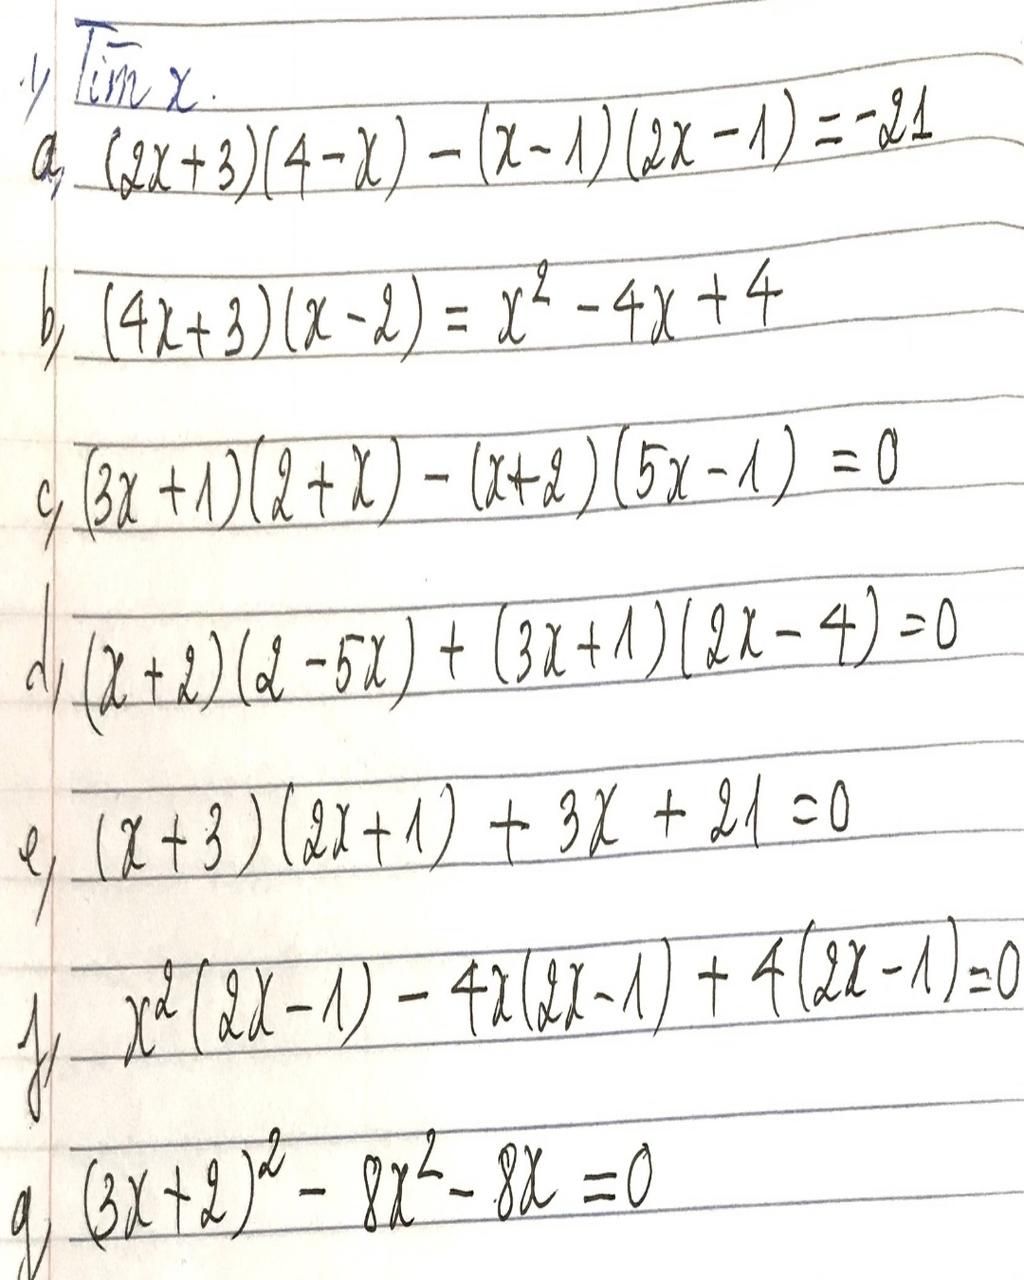 1) Tìm x.
a, (2x+3)(4-x) - (x-1)(2x-1) = -21
b, (4x+3)(x-2) = x² - 4x + 4
c, (3x+1)(2+x) - (x+2)(5x-1) = 0
d, (x+2)(2-5x) + (3x+1)(2x-4) = 0
e, (x+3)(2x+1) + 3x + 21 = 0
f, x²(2x-1) - 4x(2x-1) + 4(2x-1) = 0
g, (3x+2)² - 8x² - 8x = 0